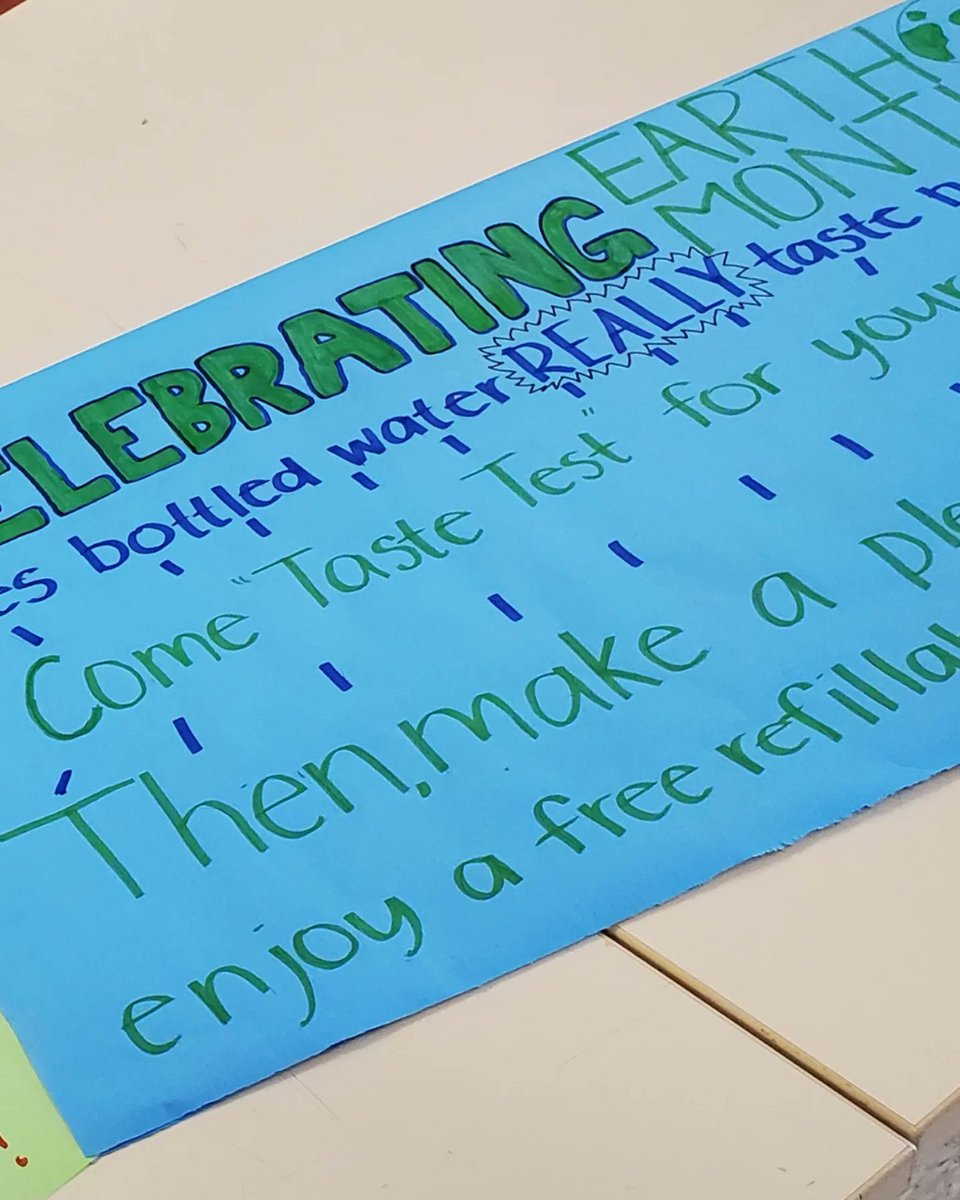 CELEBRATING EARTH MONTH
bottled water REALLY taste
Come "Taste Test" for your
Then, make a
enjoy a free